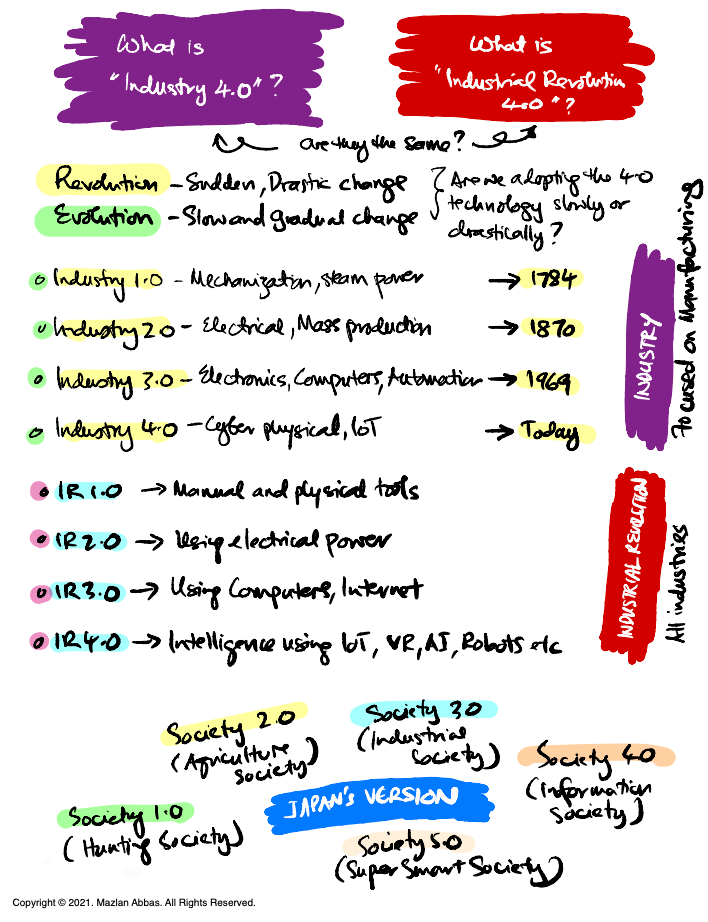 What is
"Industry 4.0"?
What is
"Industrial Revolution
4.0"?
are they the same?
Revolution - Sudden, Drastic change
Evolution - Slow and gradual change
Are we adopting the 4.0
technology slowly or
drastically?
Industry 1.0 - Mechanization, steam power → 1784
Industry 2.0 - Electrical, Mass production → 1870
Industry 3.0 - Electronics, Computers, Automation → 1969
Industry 4.0 - Cyber physical, IoT → Today
INDUSTRY
Focused on Manufacturing
IR 1.0 → Manual and physical tools
IR 2.0 → Using electrical power
IR 3.0 → Using Computers, Internet
IR 4.0 → Intelligence using IoT, VR, AI, Robots etc
INDUSTRIAL REVOLUTION
All industries
Society 2.0
(Agriculture
Society)
Society 3.0
(Industrial
Society)
Society 4.0
(Information
Society)
Society 1.0
(Hunting Society)
JAPAN'S VERSION
Society 5.0
(Super Smart Society)
Copyright © 2021. Mazlan Abbas. All Rights Reserved.